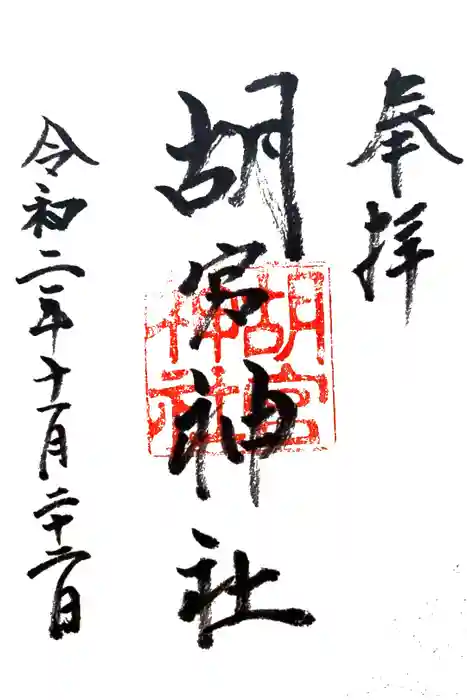 奉拝
胡宮神社
胡宮神社
令和二年十一月二十二日